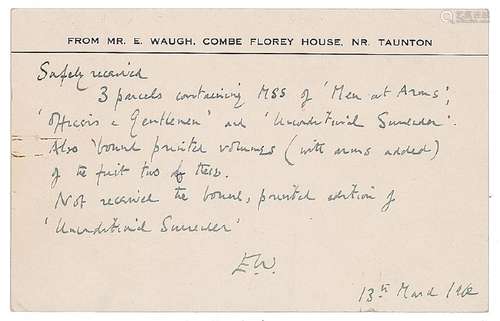 FROM MR. E. WAUGH, COMBE FLOREY HOUSE, NR. TAUNTON
Safely received
3 parcels containing MSS of 'Men at Arms';
'Officers & Gentlemen' and 'Unconditional Surrender'.
Also bound printed volumes (with arms added)
of the first two of these.
Not received the bound, printed edition of
'Unconditional Surrender'
E.W.
13th March